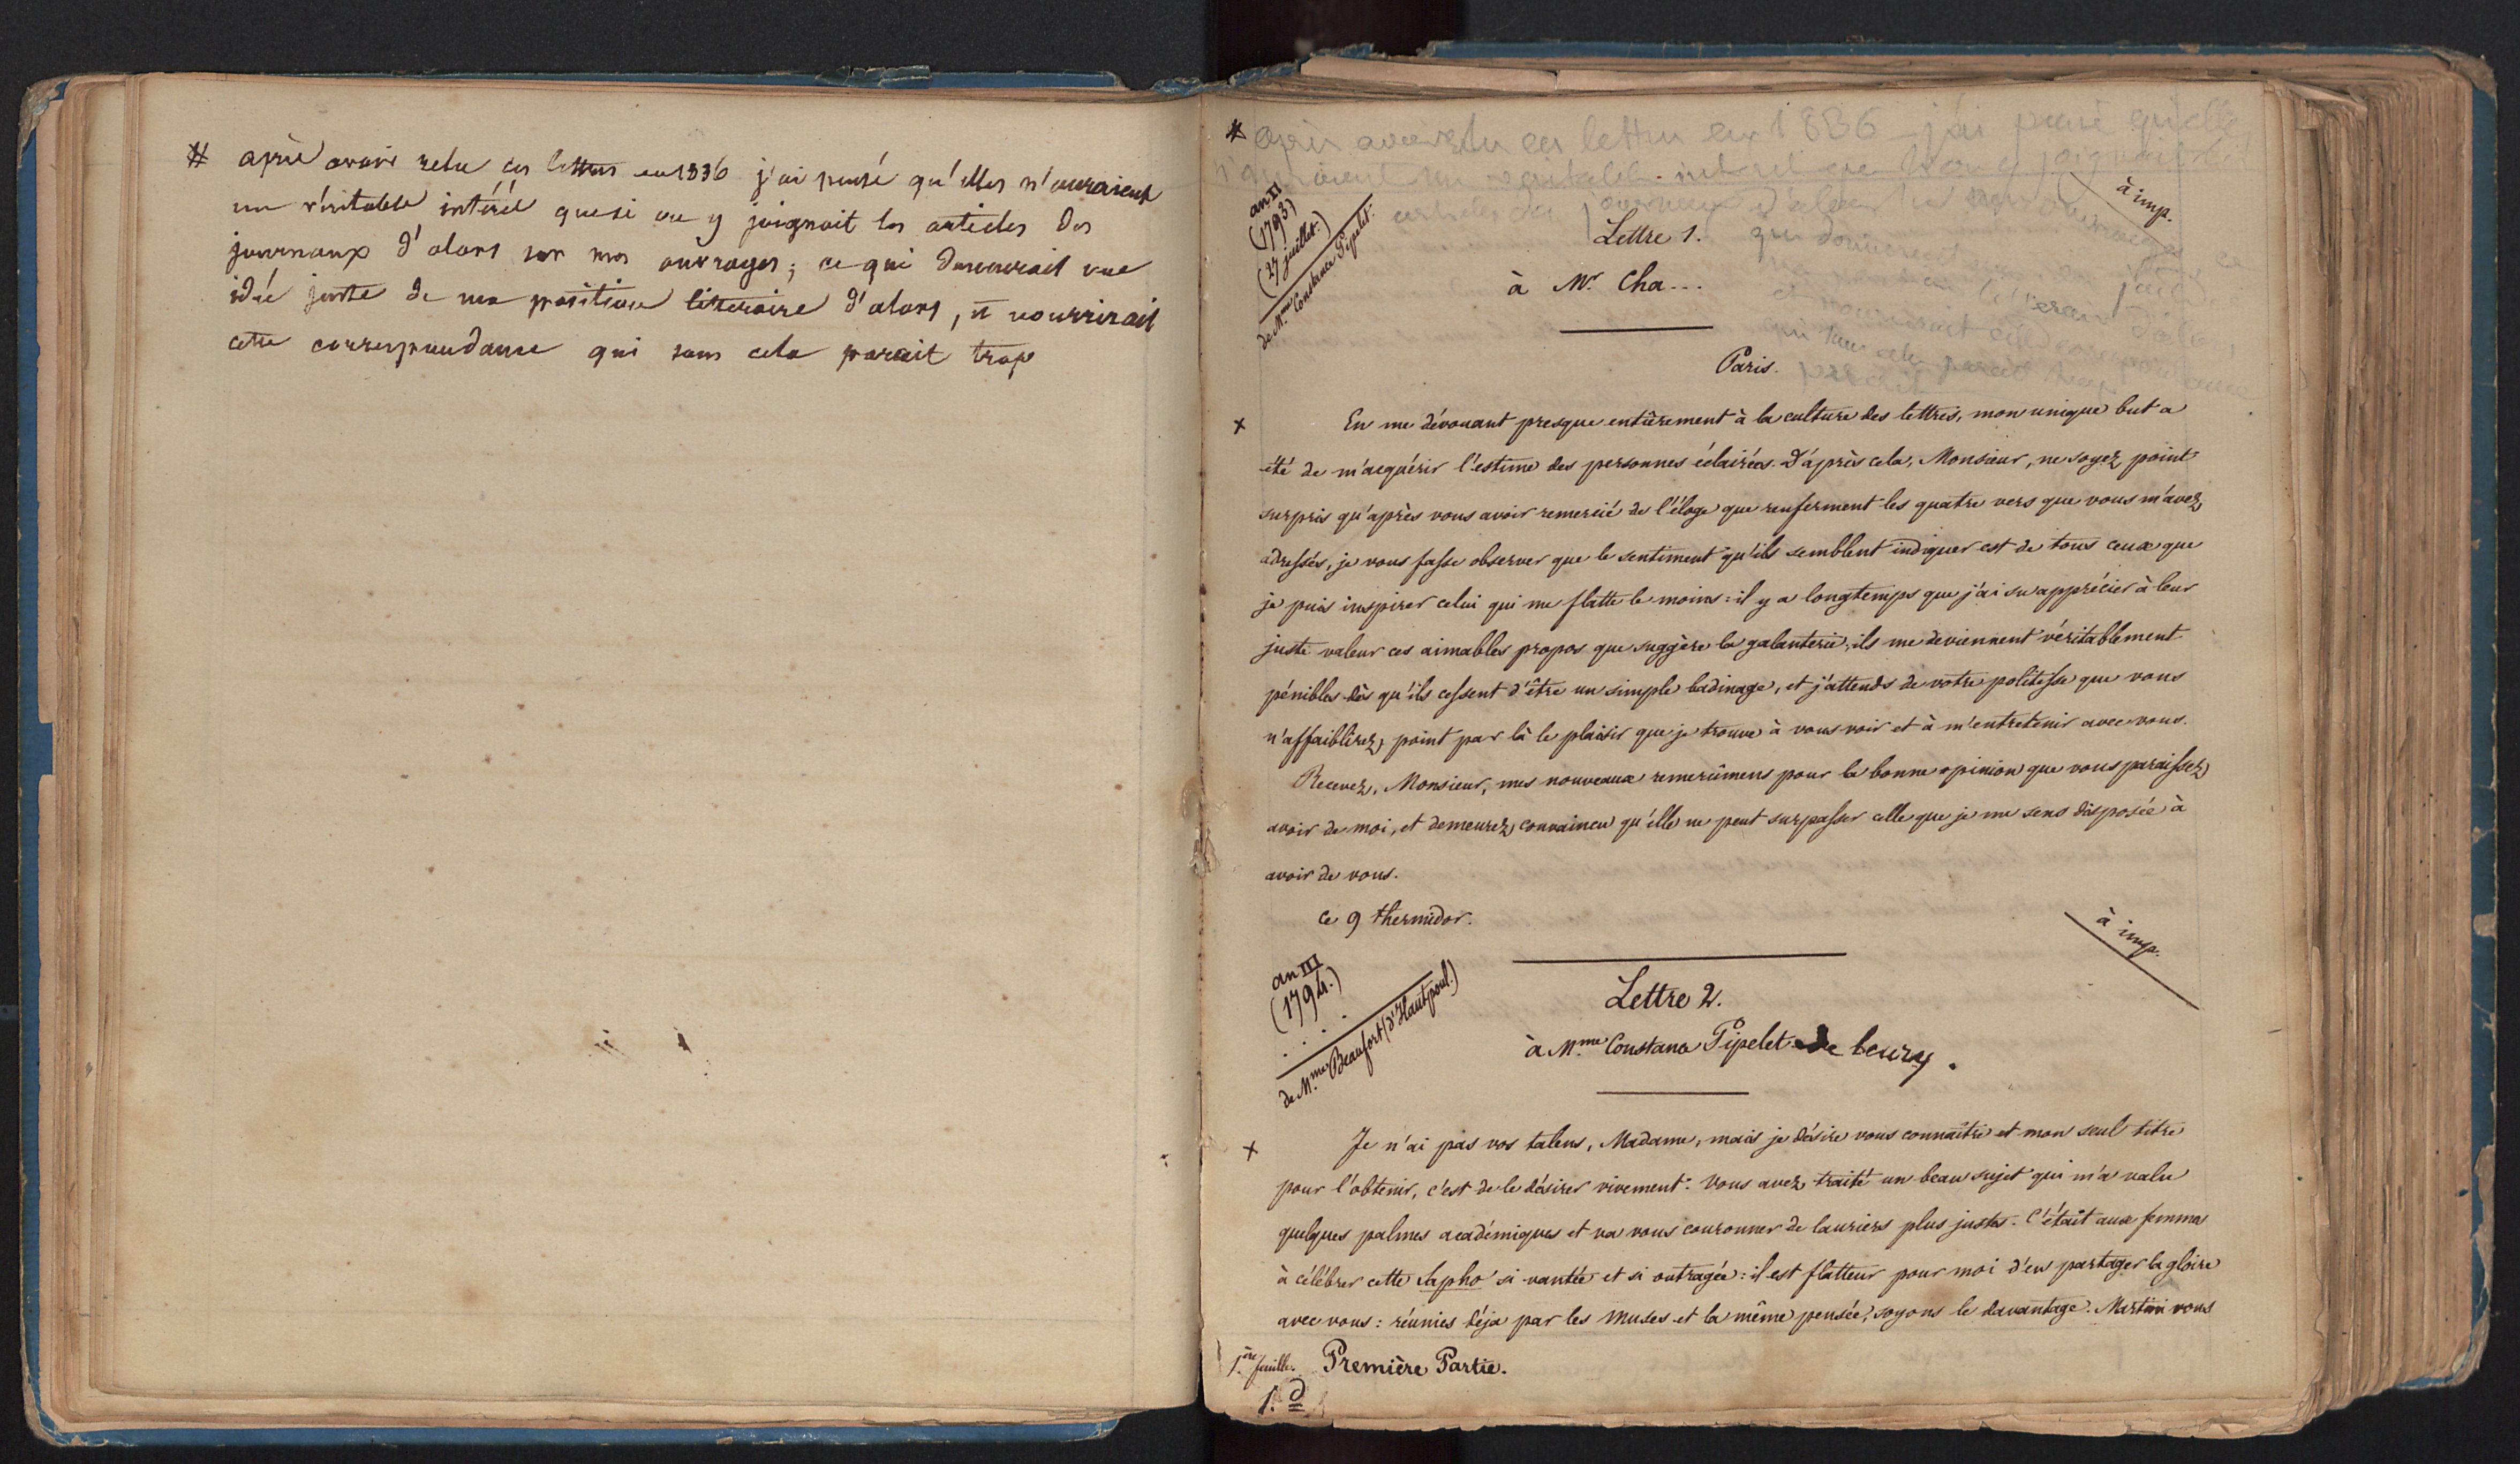 # après avoir relu ces lettres en 1836 j'ai pensé qu'elles n'auraient
un véritable intérêt que si on y joignait les articles des
journaux d'alors sur mes ouvrages ; ce qui donnerait une
idée juste de ma position litteraire d'alors, et nourrirait
cette correspondance qui sans cela parait trop
# après avoir relu ces lettres en 1836 j'ai pensé qu'elles
n'auraient un véritable intérêt que si on y joignait les
articles des journaux d'alors sur mes ouvrages ce
qui donnerait
littéraire d'alors
et nourrirait cette correspondance
qui sans cela parait trop
parait
an II
(1793)
(27 juillet.)
de M.me Constance Pipelet.
à imp.
Lettre 1.
à Mr. Cha...
Paris.
x En me dévouant presque entièrement à la culture des lettres, mon unique but a
été de m'acquérir l'estime des personnes éclairées. D'après cela, Monsieur, ne soyez point
surpris qu'après vous avoir remercié de l'éloge que renferment les quatre vers que vous m'avez
adressés, je vous fasse observer que le sentiment qu'ils semblent indiquer est de tous ceux que
je puis inspirer celui qui me flatte le moins : il y a longtemps que j'ai su apprécier à leur
juste valeur ces aimables propos que suggère la galanterie ; ils me deviennent véritablement
pénibles dès qu'ils cessent d'être un simple badinage, et j'attends de votre politesse que vous
n'affaiblirez point par là le plaisir que je trouve à vous voir et à m'entretenir avec vous.
Recevez, Monsieur, mes nouveaux remercîmens pour la bonne opinion que vous paraissez
avoir de moi, et demeurez convaincu qu'elle ne peut surpasser celle que je me sens disposée à
avoir de vous.
Ce 9 thermidor.
an III
(1794.)
. . .
de M.me Beaufort (d'Hautpoul.)
à imp.
Lettre 2.
à M.me Constance Pipelet de Leury.
x Je n'ai pas vos talens, Madame, mais je désire vous connaître et mon seul titre
pour l'obtenir, c'est de le désirer vivement. Vous avez traité un beau sujet qui m'a valu
quelques palmes académiques et va vous couronner de lauriers plus justes. C'était aux femmes
à célébrer cette Sapho si vantée et si outragée : il est flatteur pour moi d'en partager la gloire
avec vous : réunies déja par les Muses et la même pensée, soyons le davantage. Martini vous
1.ère feuille. Première Partie.
1.